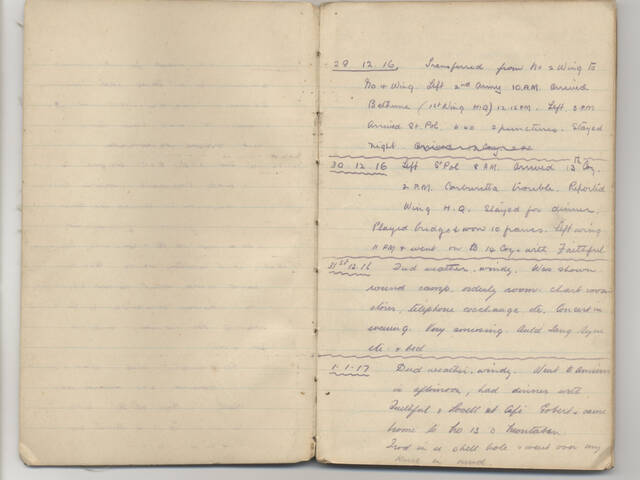 28 12.16. Transferred from No 2 Wing to
No 4 Wing. Left 2nd Army 10 A.M. arrived
Bethune (1st Wing H.Q) 12.15 P.M. Left 3 P.M
arrived St. Pol 2 punctures. Stayed
night
30 12 16 Left St Pol 8 A.M. arrived 13th Coy.
2 P.M. Carburetta trouble. Reported
Wing H.Q. Stayed for dinner.
Played bridge & won 10 francs. Left wing
11 P.M & went on B 14 Coy. with Faithful
31st 12.16 Dud weather, windy. Was shown
round camp, orderly room, chart room
stores, telephone exchange etc. Concert in
evening. Very amusing. Auld Lang Syne
etc. & bed
1-1-17 Dud weather, windy. Went to Amiens
in afternoon, had dinner with
Faithful & at Café & came
home to No 13 Montaban.
Trod in a shell hole & went over my
knees in mud.